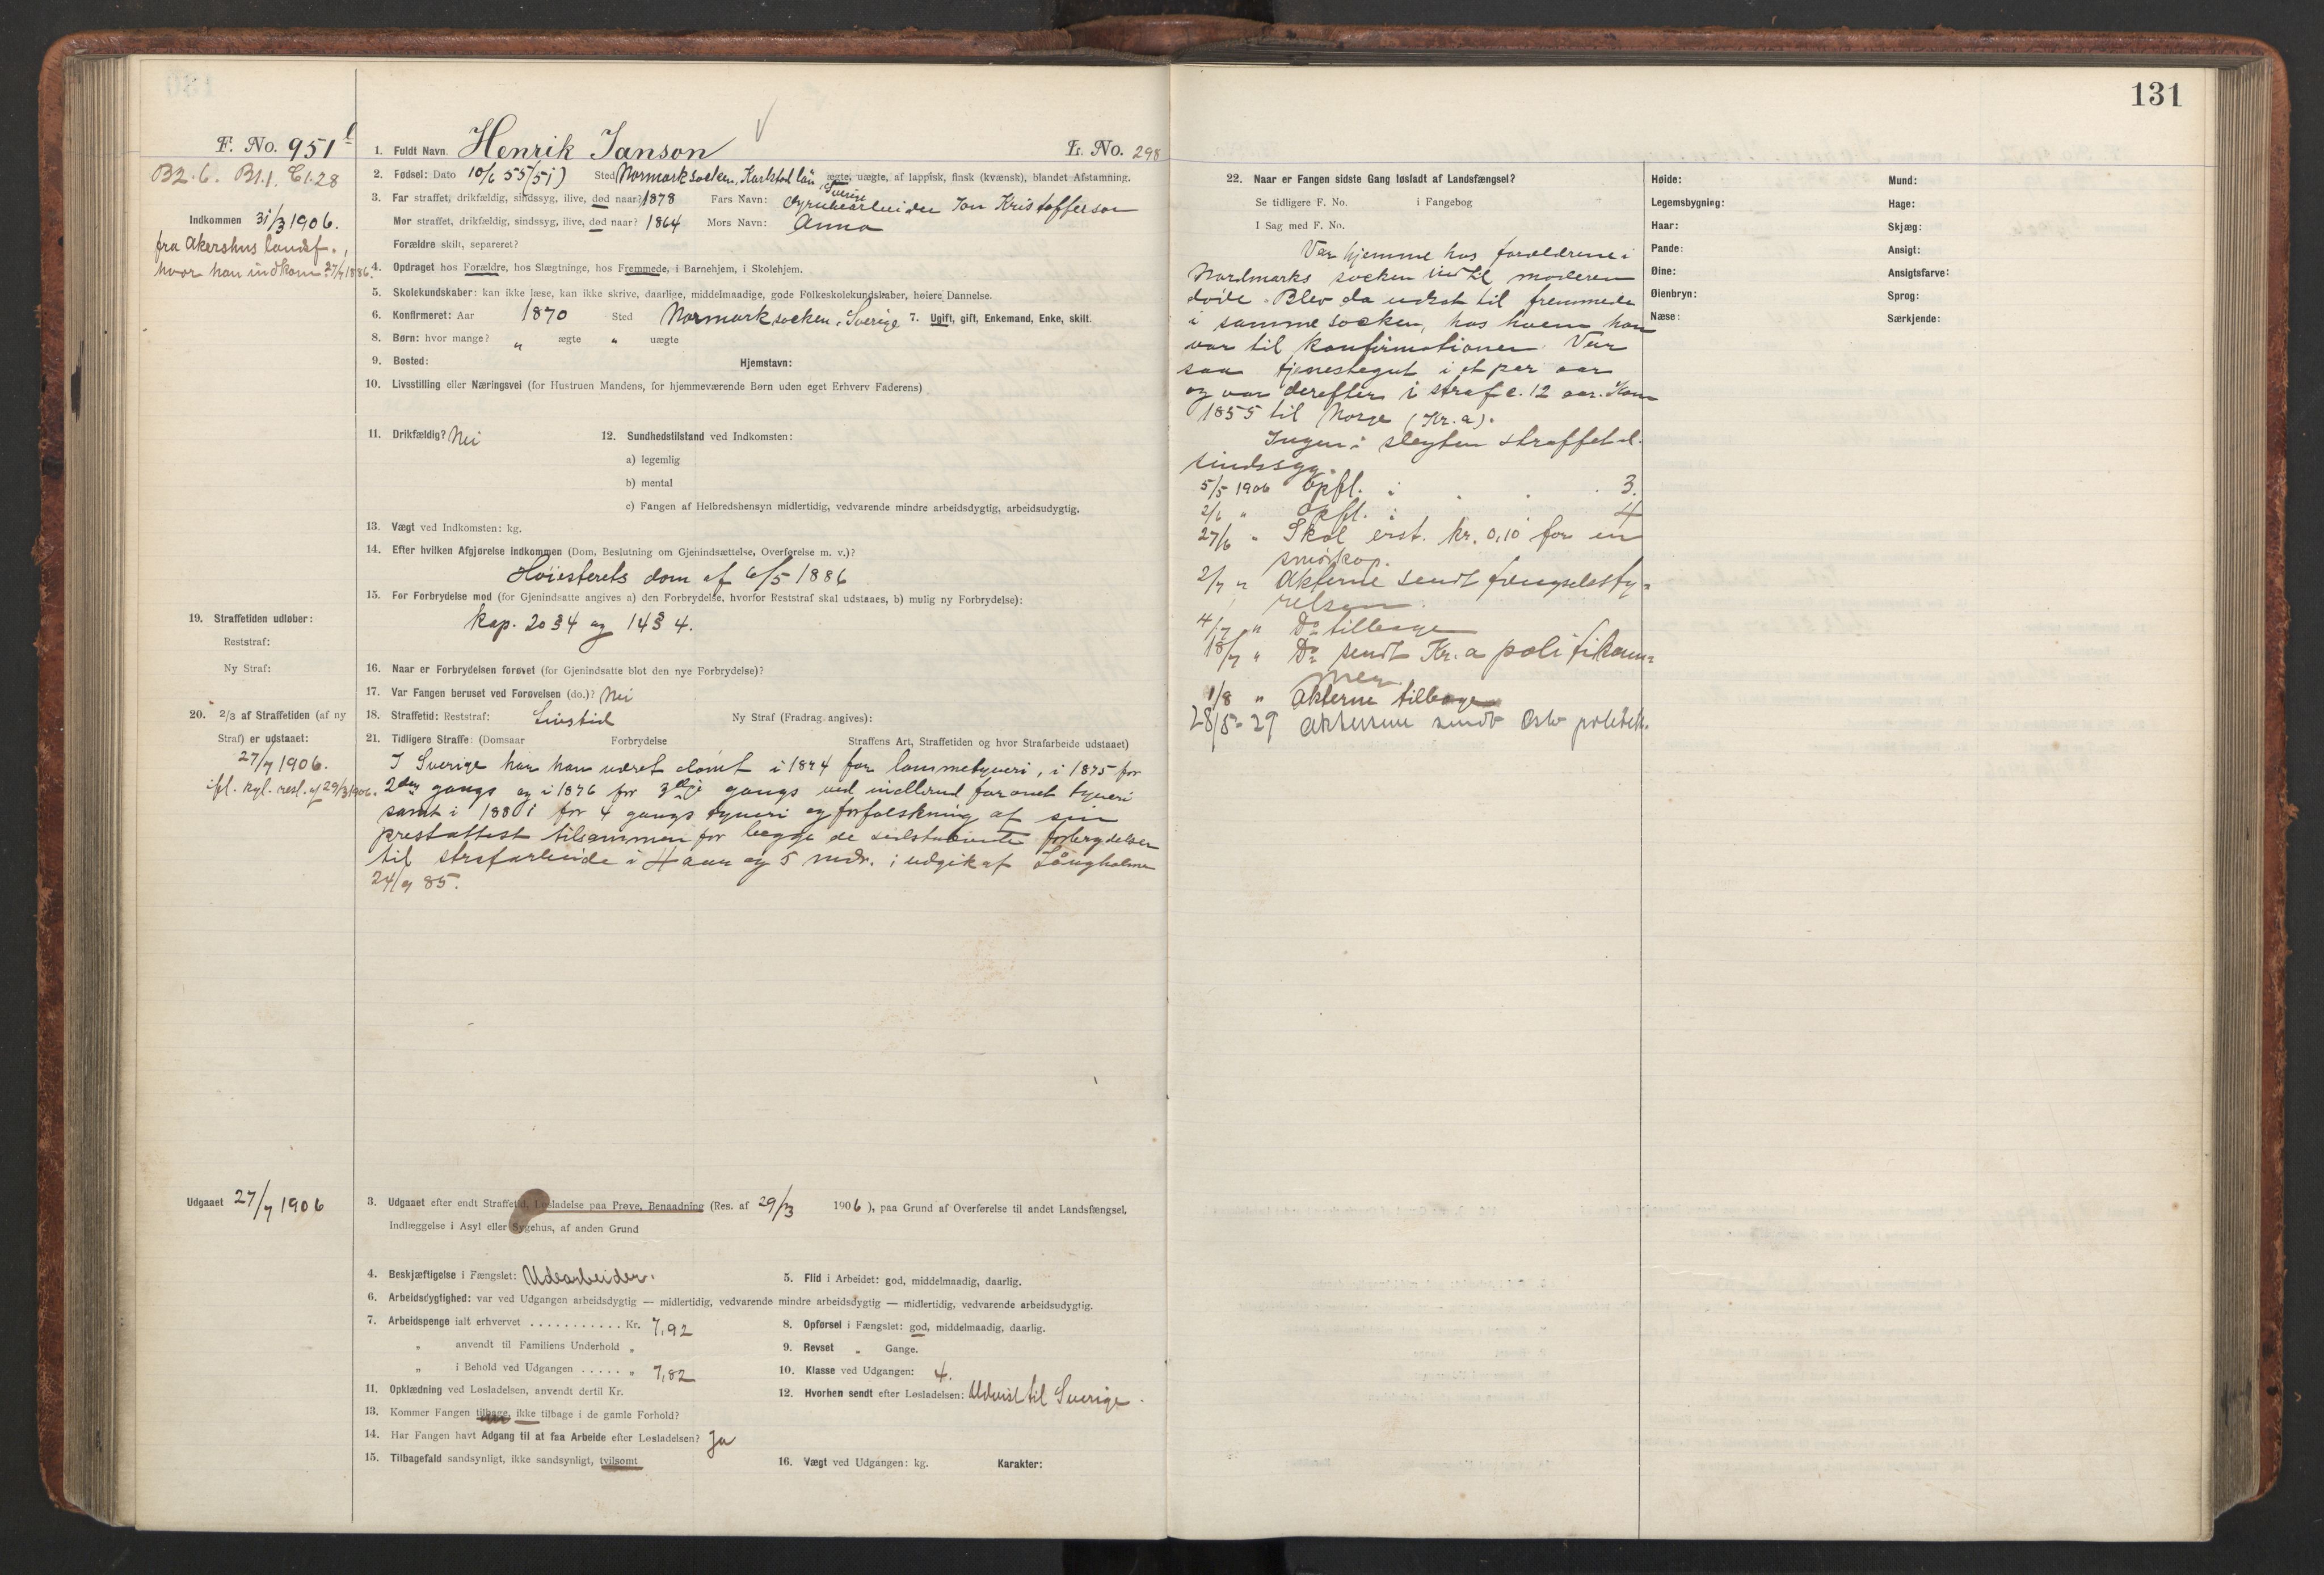 131
F. No. 951 b
B2.6. B1.1. C1.28
Indkommen 31/3 1906.
fra Akershus landsf.,
hvor han indkom 27/7 1886.
1. Fuldt Navn. Henrik Janson L. No. 298
2. Fødsel: Dato 10/6 55 (51) Sted Normarksocken, Karlstad län, Sverige ægte, uægte, af lappisk, finsk (kvænsk), blandet Afstamning.
3. Far straffet, drikfældig, sindssyg, ilive, død naar? 1878 Fars Navn: Jon Kristofferson
Mor straffet, drikfældig, sindssyg, ilive, død naar? 1864 Mors Navn: Anna
Forældre skilt, separeret?
4. Opdraget hos Forældre, hos Slægtninge, hos Fremmede, i Barnehjem, i Skolehjem.
5. Skolekundskaber: kan ikke læse, kan ikke skrive, daarlige, middelmaadige, gode Folkeskolekundskaber, høiere Dannelse.
6. Konfirmeret: Aar 1870 Sted Normarksocken, Sverige 7. Ugift, gift, Enkemand, Enke, skilt.
8. Børn: hvor mange? " ægte " uægte
9. Bosted: Hjemstavn:
10. Livsstilling eller Næringsvei (for Hustruen Mandens, for hjemmeværende Børn uden eget Erhverv Faderens)
11. Drikfældig? Nei 12. Sundhedstilstand ved Indkomsten:
a) legemlig
b) mental
c) Fangen af Helbredshensyn midlertidig, vedvarende mindre arbeidsdygtig, arbeidsudygtig.
13. Vægt ved Indkomsten: kg.
14. Efter hvilken Afgjørelse indkommen (Dom, Beslutning om Gjenindsættelse, Overførelse m. v.)?
Høiesterets dom af 6/5 1886
15. For Forbrydelse mod (for Gjenindsatte angives a) den Forbrydelse, hvorfor Reststraf skal udstaaes, b) mulig ny Forbrydelse):
kap. 20 § 4 og 14 § 4.
19. Straffetiden udløber:
Reststraf:
Ny Straf:
16. Naar er Forbrydelsen forøvet (for Gjenindsatte blot den nye Forbrydelse)?
17. Var Fangen beruset ved Forøvelsen (do.)? Nei
18. Straffetid: Reststraf: Livstid Ny Straf (Fradrag angives):
20. 2/3 af Straffetiden (af ny
Straf) er udstaaet:
27/7 1906.
ifl. kgl. resl. af 29/3 1906.
21. Tidligere Straffe: (Domsaar Forbrydelse Straffens Art, Straffetiden og hvor Strafarbeide udstaaet)
I Sverige har han været dømt i 1874 for lommetyveri, i 1875 for
2den gangs og i 1876 for 3dje gangs ved indbrud forøvet tyveri
samt i 1880 for 4 gangs tyveri og forfalskning af sin
prestattest tilsammen for begge de sidstnævnte forbrydelser
til strafarbeide i 4 aar og 5 mdr. i udgik af Långholmen
24/9 85.
Udgaaet 27/7 1906
3. Udgaaet efter endt Straffetid, Løsladelse paa Prøve, Benaadning (Res. af 29/3 1906), paa Grund af Overførelse til andet Landsfængsel,
Indlæggelse i Asyl eller Sygehus, af anden Grund
4. Beskjæftigelse i Fængslet: Udearbeider. 5. Flid i Arbeidet: god, middelmaadig, daarlig.
6. Arbeidsdygtighed: var ved Udgangen arbeidsdygtig — midlertidig, vedvarende mindre arbeidsdygtig — midlertidig, vedvarende arbeidsudygtig.
7. Arbeidspenge ialt erhvervet . . . . . . . . . . . Kr. 7,92 8. Opførsel i Fængslet: god, middelmaadig, daarlig.
" anvendt til Familiens Underhold " 9. Revset " Gange.
" i Behold ved Udgangen . . . . . " 7,82 10. Klasse ved Udgangen: 4.
11. Opklædning ved Løsladelsen, anvendt dertil Kr. 12. Hvorhen sendt efter Løsladelsen: Udvist til Sverige.
13. Kommer Fangen tilbage, ikke tilbage i de gamle Forhold?
14. Har Fangen havt Adgang til at faa Arbeide efter Løsladelsen? Ja
15. Tilbagefald sandsynligt, ikke sandsynligt, tvilsomt 16. Vægt ved Udgangen: kg. Karakter:
22. Naar er Fangen sidste Gang løsladt af Landsfængsel?
Se tidligere F. No. i Fangebog
I Sag med F. No.
Var hjemme hos forældrene i
Nordmarks socken indtil moderen
døde. Blev da udsat til fremmede
i samme socken, hos hvem han
var til konfirmationen. Var
saa tjenestegut i et par aar
og var derefter i straf c. 12 aar. Kom
1855 til Norge (Kr.a).
Ingen i slegten straffet el.
sindssyg.
5/5 1906 Opfl. i . . . 3.
2/6 " Opfl. i . . 4
27/6 " Skal erst. kr. 0,10 for en
smørkop.
2/7 " Akterne sendt fængselssty-
relsen.
4/7 " Do tilbage
18/7 " Do sendt Kr.a politikam-
mer
1/8 " Akterne tilbage
28/5-29 akterne sendt Oslo politik.
Høide: Mund:
Legemsbygning: Hage:
Haar: Skjæg:
Pande: Ansigt:
Øine: Ansigtsfarve:
Øienbryn: Sprog:
Næse: Særkjende: